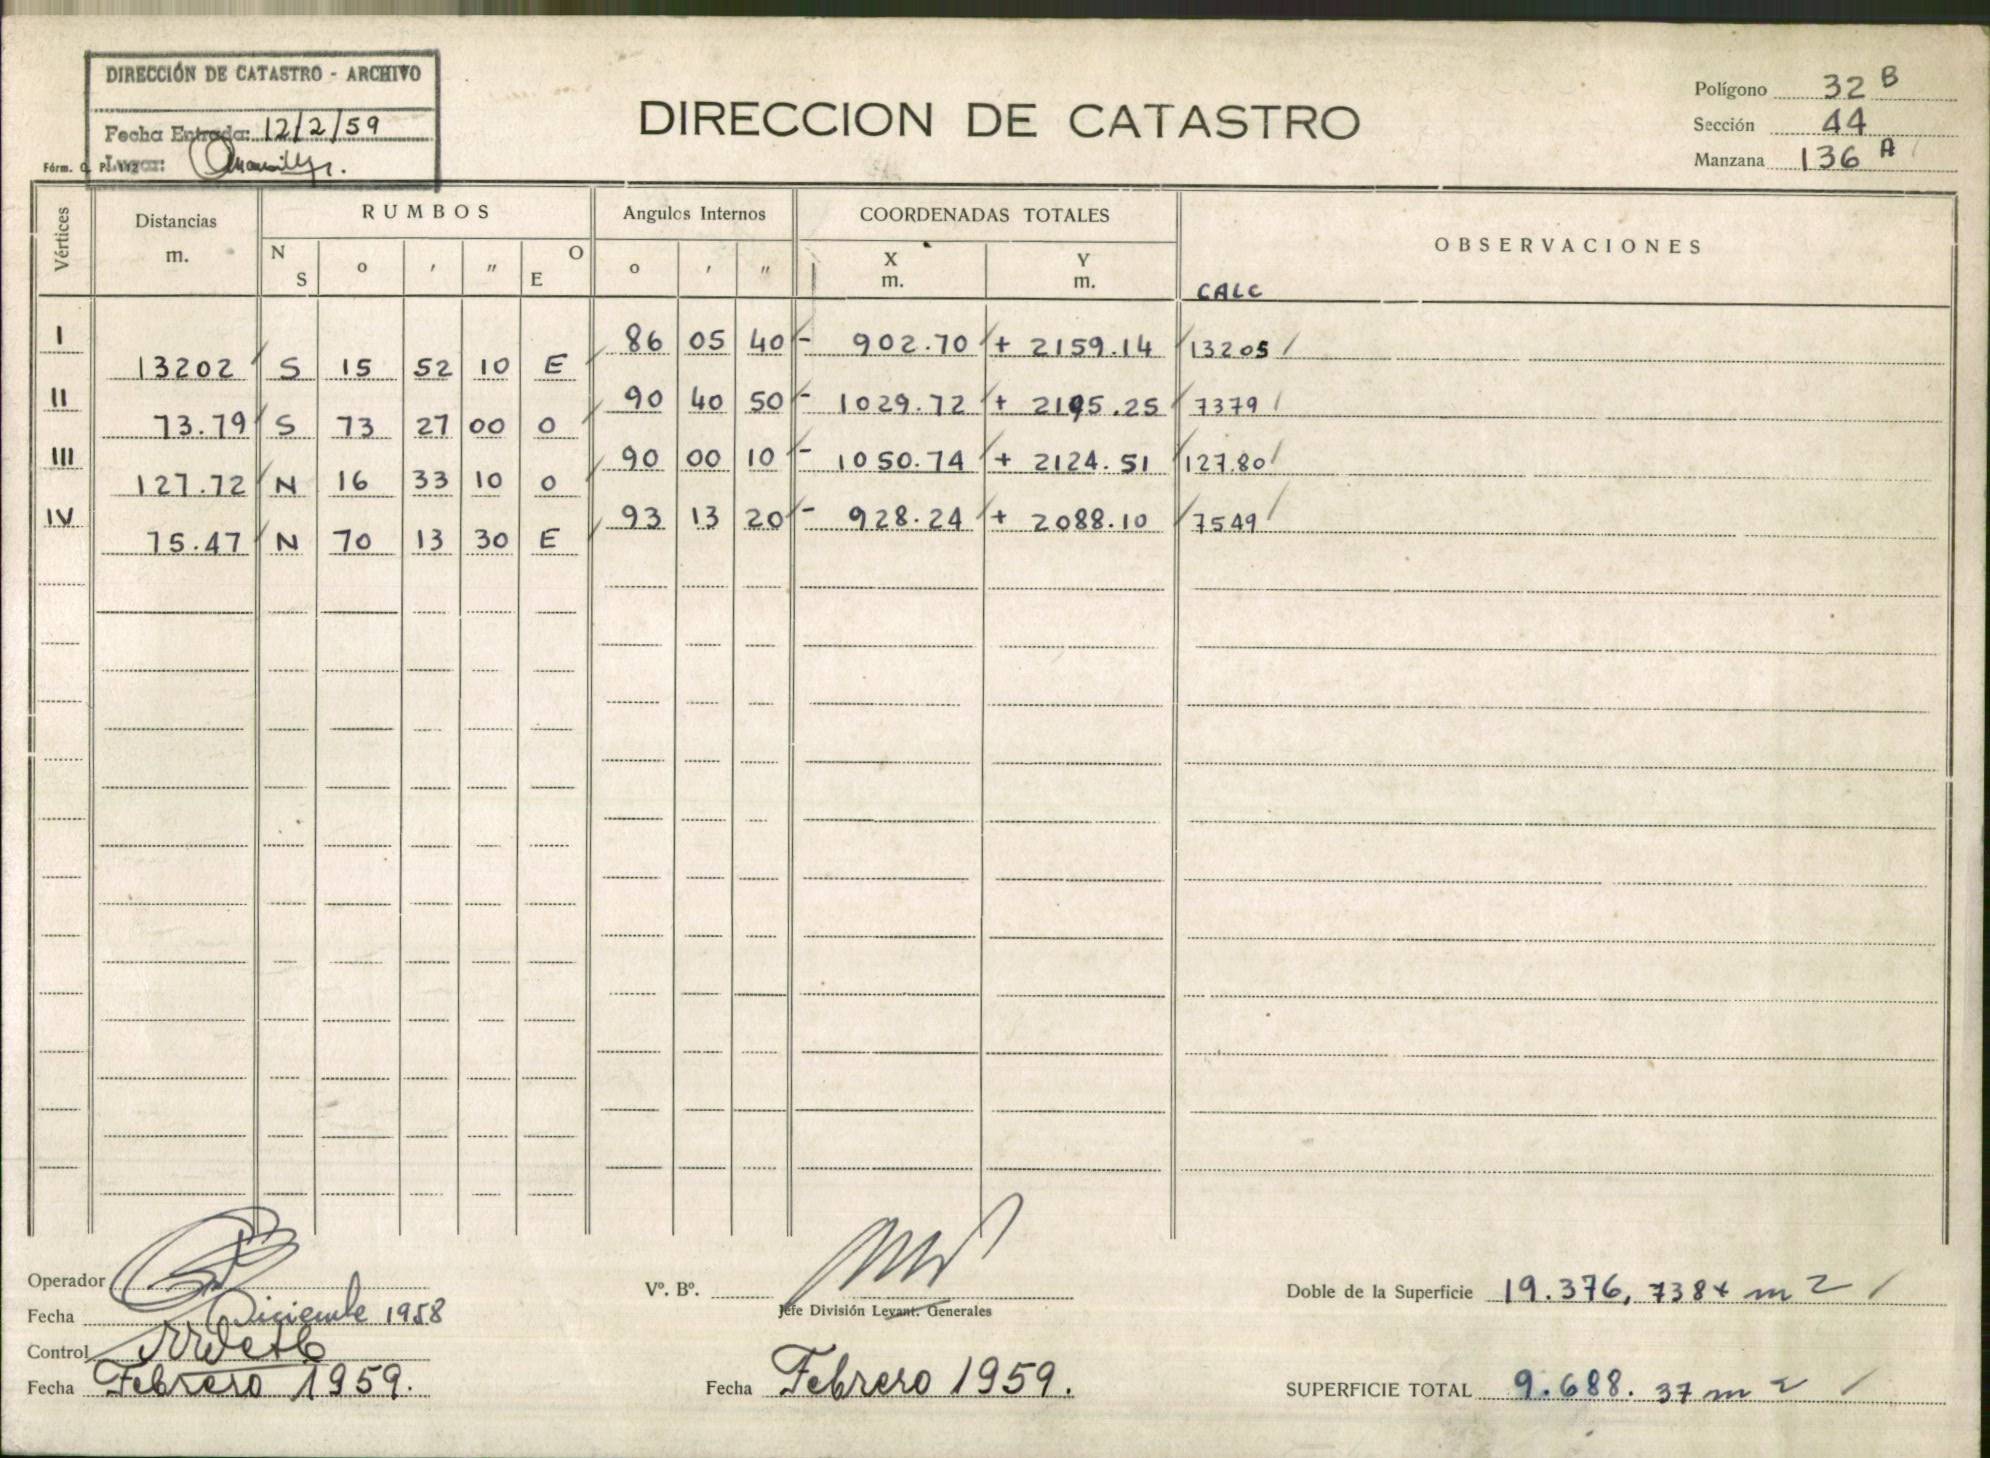 DIRECCIÓN DE CATASTRO - ARCHIVO
Fecha Entrada: 12/2/59
Lugar:
Fórm. O. P.
DIRECCION DE CATASTRO
Polígono 32 B
Sección 44
Manzana 136 A
Vértices Distancias m. RUMBOS Angulos Internos COORDENADAS TOTALES OBSERVACIONES
N S o ' " O E o ' " X m. Y m.
CALC
I 86 05 40 - 902.70 + 2159.14 13205
13202 S 15 52 10 E
II 90 40 50 - 1029.72 + 2195.25 7379
73.79 S 73 27 00 O
III 90 00 10 - 1050.74 + 2124.51 127.80
127.72 N 16 33 10 O
IV 93 13 20 - 928.24 + 2088.10 7549
75.47 N 70 13 30 E
Operador
Fecha Diciembre 1958
Control
Fecha Febrero 1959.
Vº. Bº.
Jefe División Levant. Generales
Fecha Febrero 1959.
Doble de la Superficie 19.376, 7384 m 2
SUPERFICIE TOTAL 9.688. 37 m 2